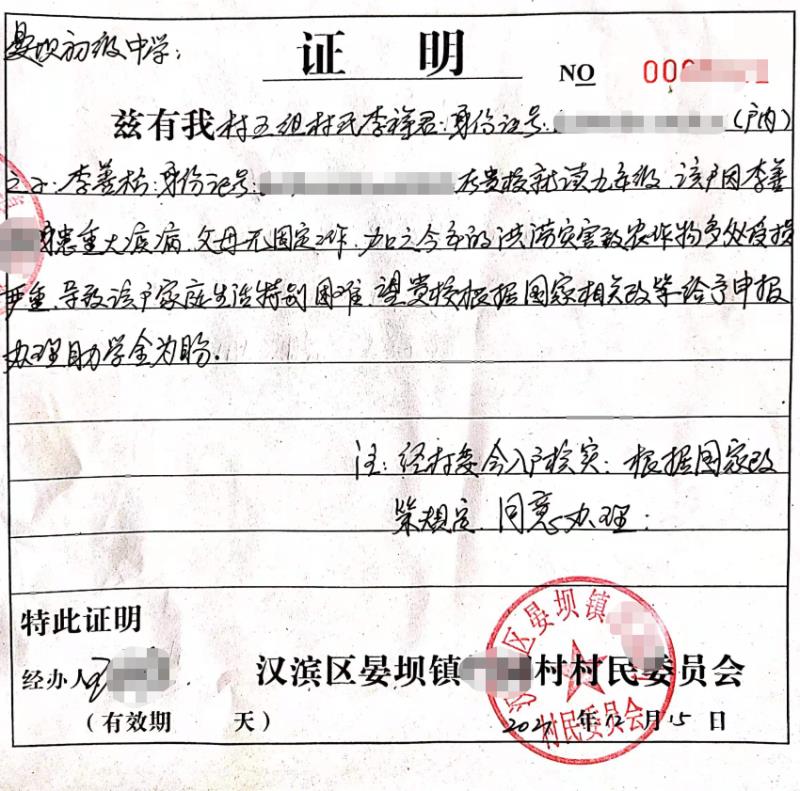 晏坝初级中学:
证明
NO 00
兹有我村五组村民李祥君:身份证号: (户内)
之子:李善 身份证号: 在贵校就读九年级,该户因李善
身患重大疾病,父母无固定工作,加之今年的洪涝灾害致农作物多处受损
严重,导致该户家庭生活特别困难,望贵校根据国家相关政策给予申报
办理助学金为盼.
注:经村委会入户核实:根据国家政
策规定,同意办理:
特此证明
经办人
汉滨区晏坝镇 村村民委员会
(有效期 天)
年12月15日
区晏坝镇
村民委员会